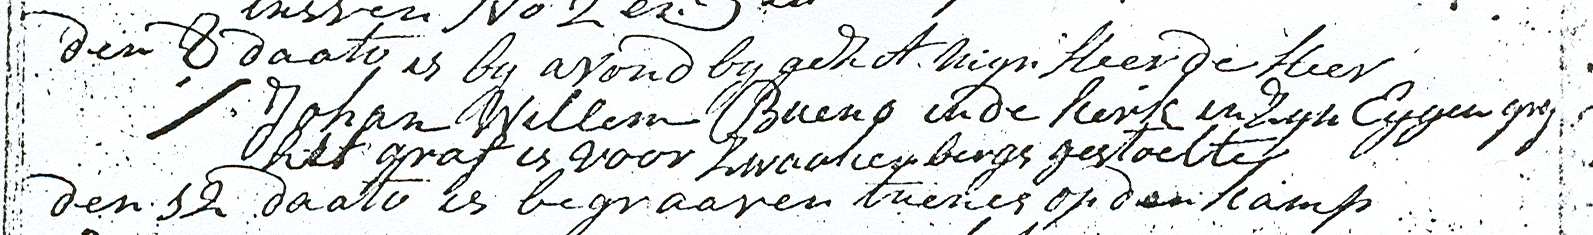 tussen No 2 en 3
den 8 daato is by avond by geset mijn Heer de Heer
Johan Willem Bueno in de kerk in Zyn Eygen graf
het graf is voor Zwanenbergs gestoelte
den 12 daato is begraaven teunes op den kamp